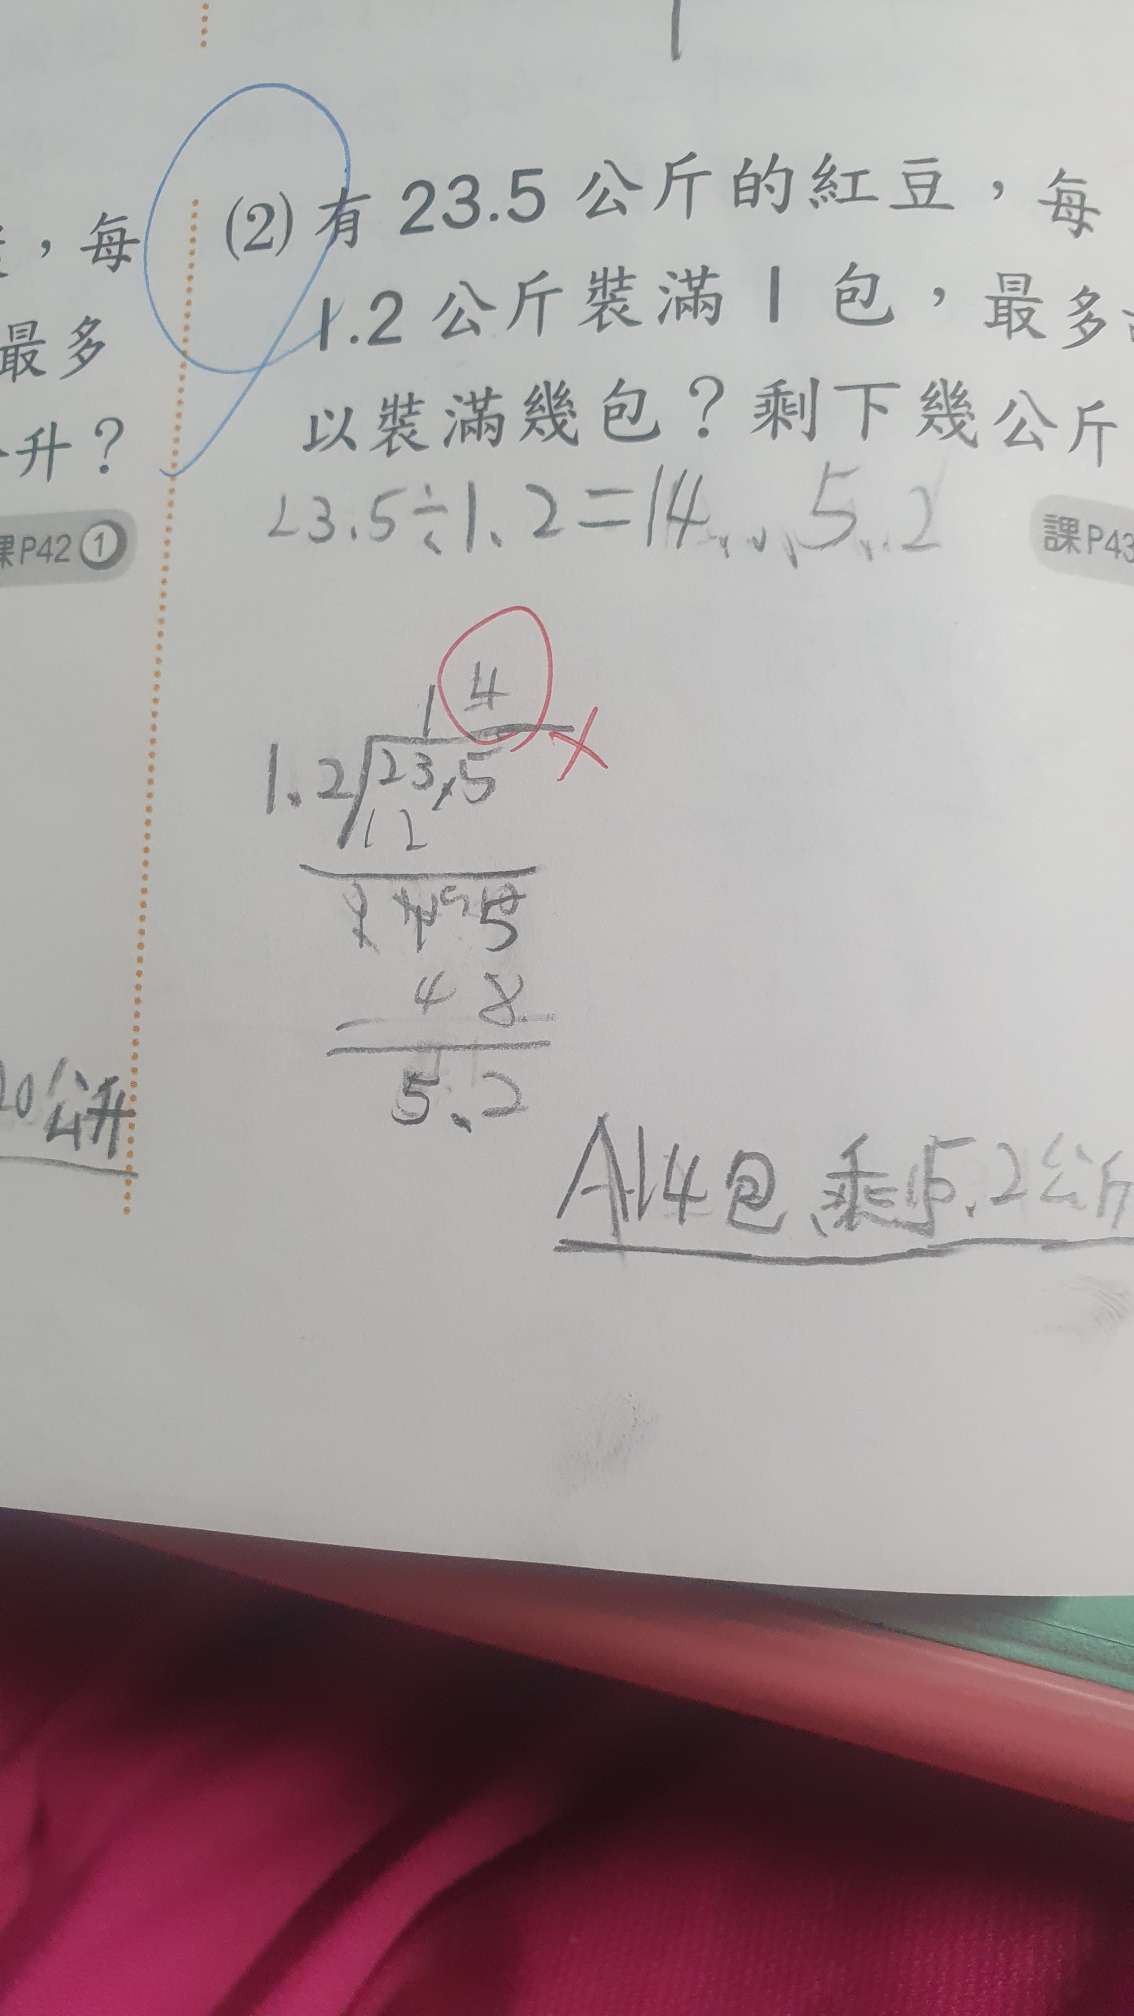 ，每
(2) 有 23.5 公斤的紅豆，每
最多
1.2 公斤裝滿 1 包，最多
升？
以裝滿幾包？剩下幾公斤
課P42 ①
23.5÷1.2=14...5.2
課P43
14
1.2 23.5
12
5
48
5.2
20公升
A14包 剩5.2公斤